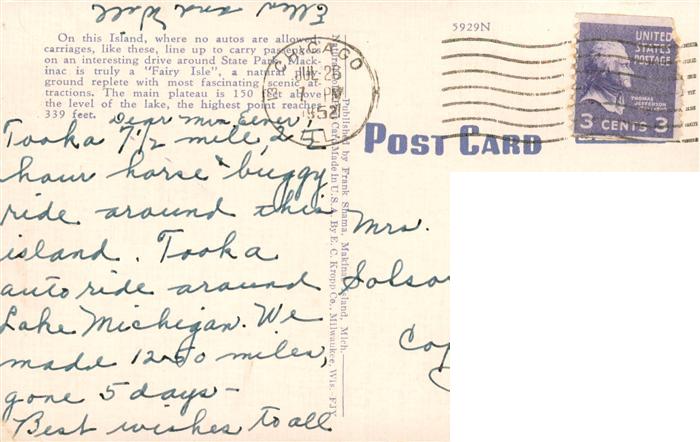 On this Island, where no autos are allowed,
carriages, like these, line up to carry passengers
on an interesting drive around State Park. Mack-
inac is truly a "Fairy Isle", a natural play-
ground replete with most fascinating scenic at-
tractions. The main plateau is 150 feet above
the level of the lake, the highest point reaches
339 feet.
Dear Mrs
Took a 7 1/2 mile, 2
hour horse buggy
ride around this
island. Took a
auto ride around
Lake Michigan. We
made 1250 miles,
gone 5 days -
Best wishes to all
Ellen and Walt
Published by Frank Shama, Makinac Island, Mich.
Card Made in U.S.A. By E. C. Kropp Co., Milwaukee, Wis.
CHICAGO
JUL 25
7 PM
1952
5929N
UNITED
STATES
POSTAGE
THOMAS JEFFERSON
3 CENTS 3
POST CARD
Mrs.